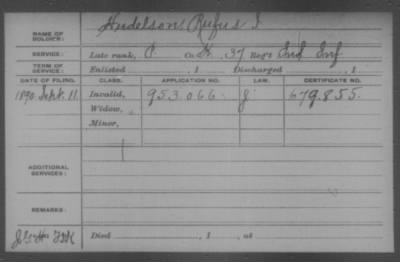 NAME OF SOLDIER: Hudelson, Rufus I.
SERVICE: Late rank, P. Co. H, 37 Reg't Ind Inf
TERM OF SERVICE: Enlisted , 1 Discharged , 1
DATE OF FILING. CLASS. APPLICATION NO. LAW. CERTIFICATE NO.
1890 Sept. 11. Invalid, 953.066 J 679.855.
Widow,
Minor,
ADDITIONAL SERVICES:
REMARKS:
Died , 1 , at